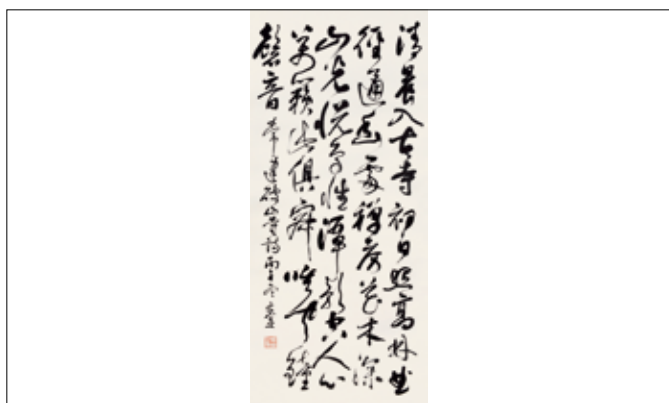 清晨入古寺初日照高林曲
徑通幽處禪房花木深
山光悅鳥性潭影空人心
萬籟此俱寂唯聞鐘
磬音 常建破山寺詩